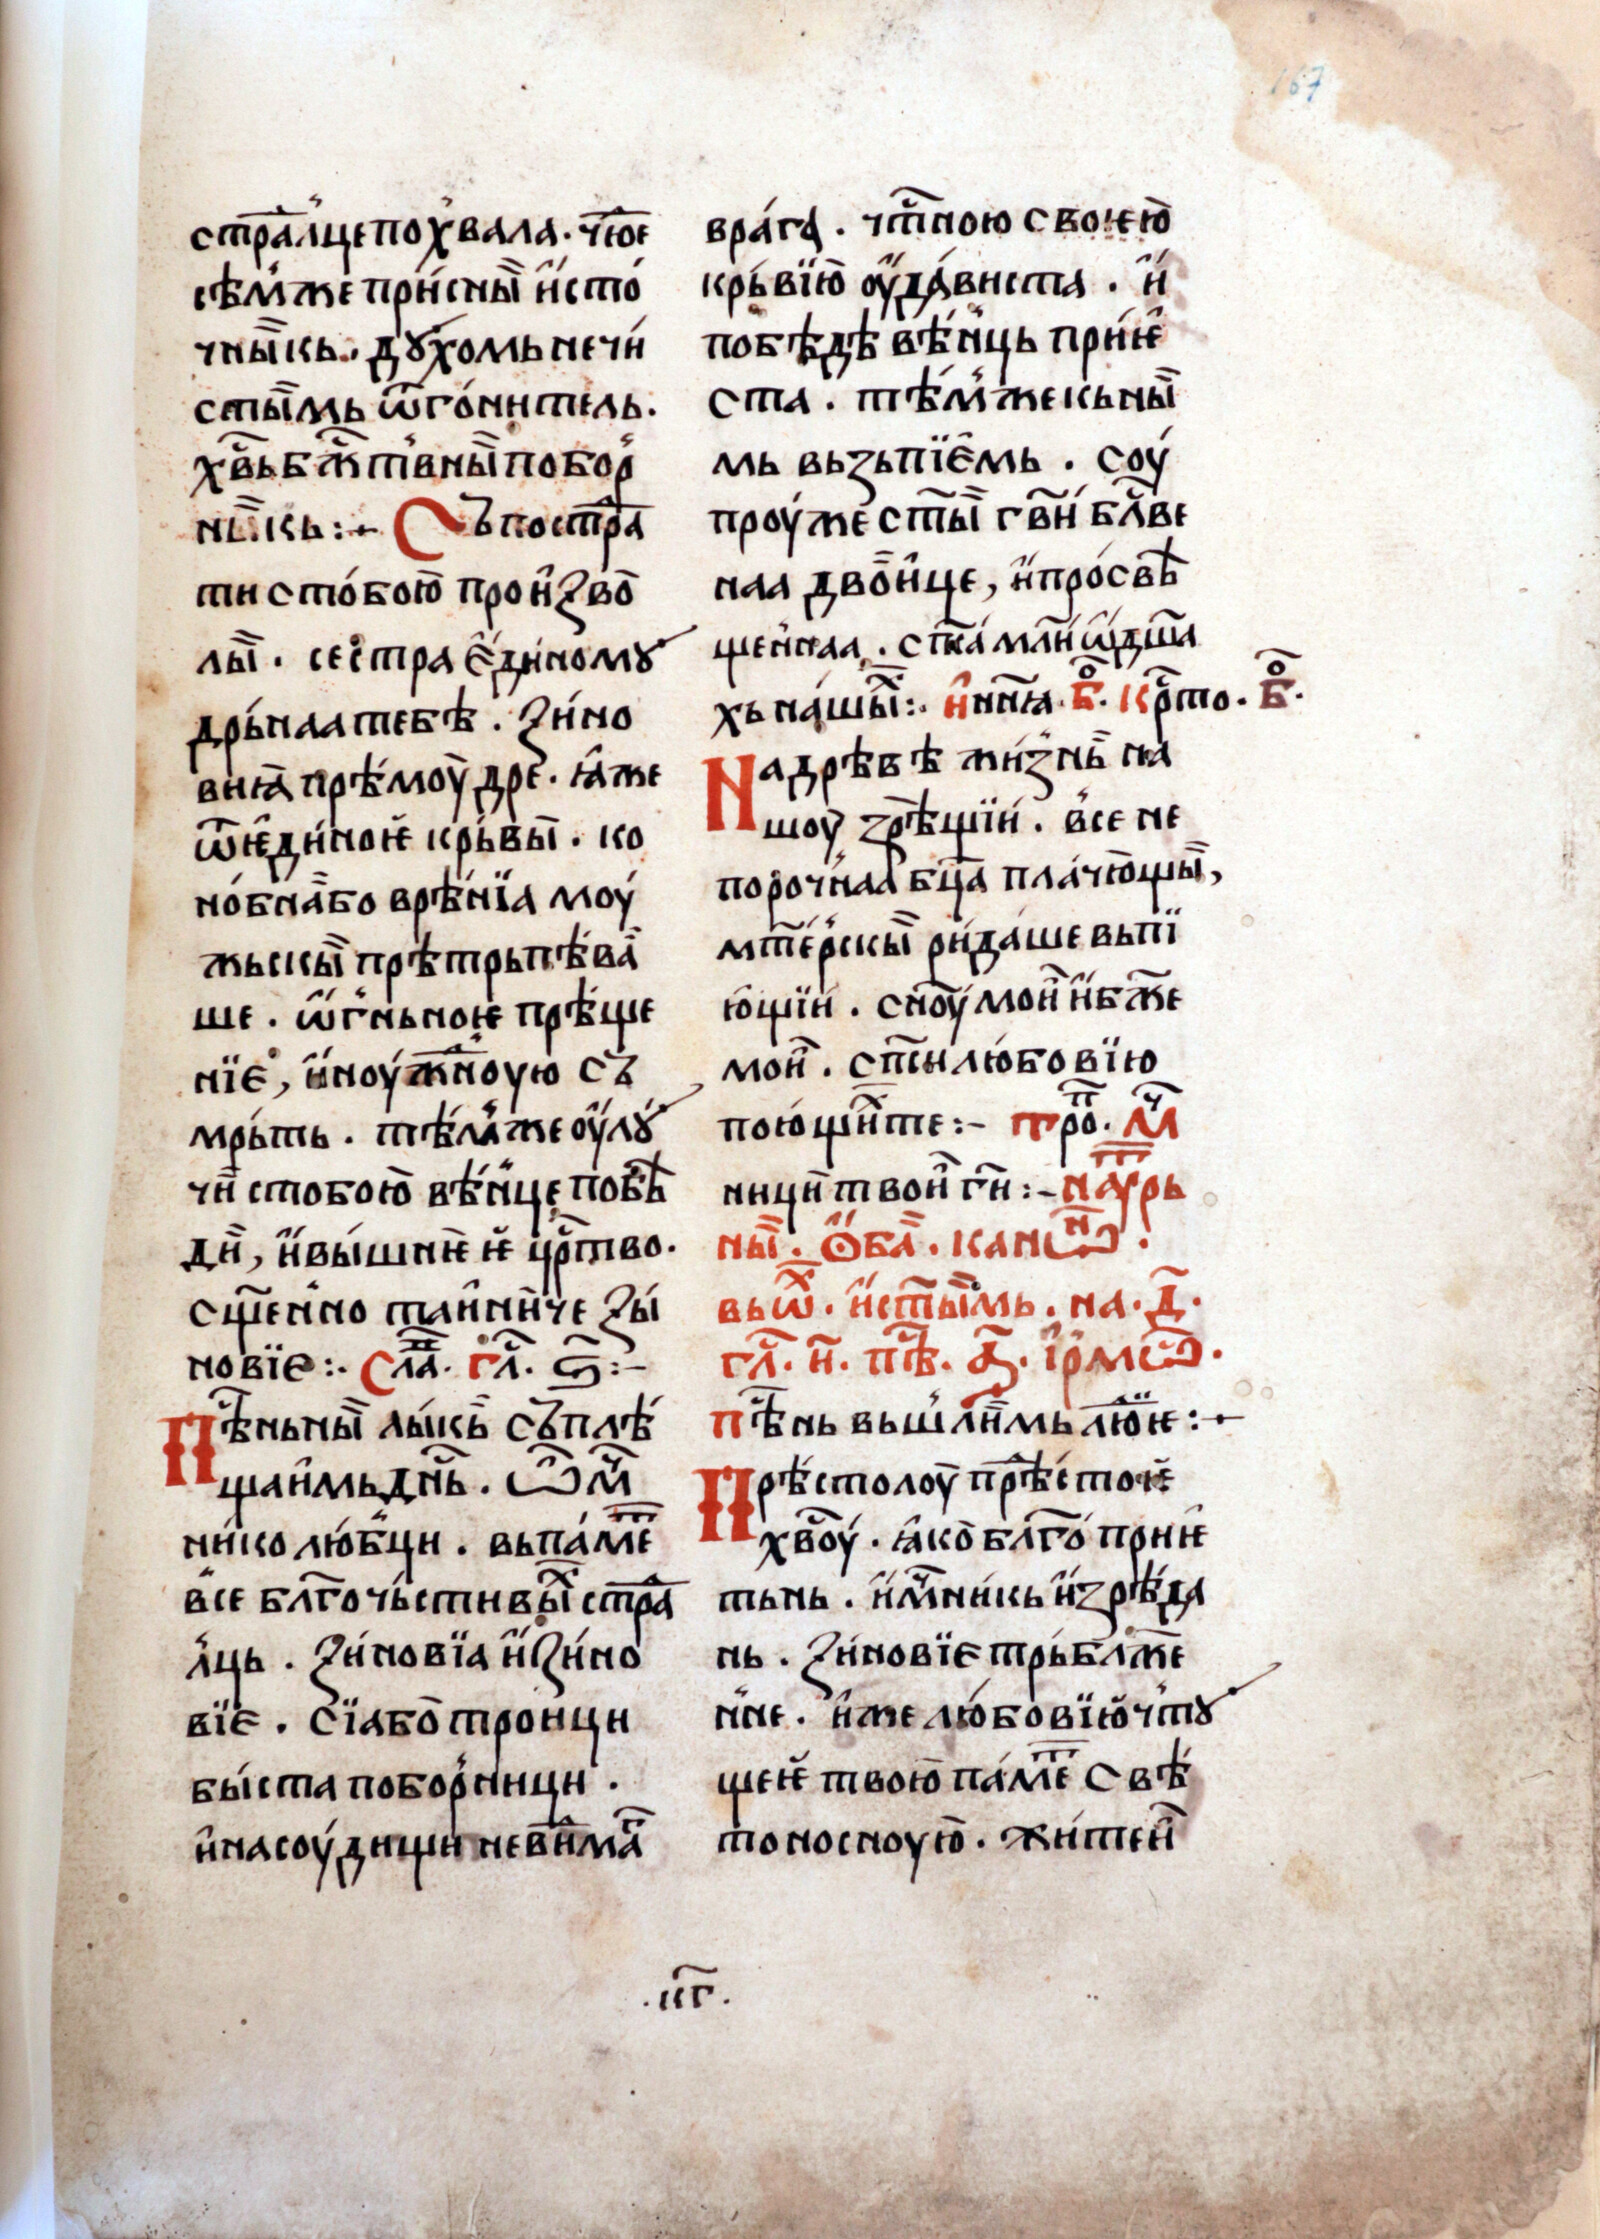 167
стра҇лцепохвала. чюⷣе
семⷨже присныи исто
чныкь. дꙋхомь нечи
стыимь ѿгонитель.
хв҃ьбжⷭ҇твныи побор
ныкь:⁘ Съпостра
ти стобою произво
лы. сестра единомꙋ
дрьнаа тебѣ. Зино
виꙗ прѣмоудре. ꙗже
ѿѥдиноѥ крьвы. ко
нобнаабо врѣнїа моу
жьскы прѣтрьпѣва
ше. ѡгньноѥ прѣще
нїе, и ноужⷣноую съ
мрьть. тѣмже оулꙋ
чи стобою вѣнце побѣ
ди, ивышнѥѥ црⷭ҇тво.
сщ҃енно таинниче Зы
новїе:. Слаⷡ҇. гл҃. ѕ҃:–
Пѣⷭ҇ньны лыкь съплѣ
щаимь дн҃ь. Ѿ мⷱ҇
николюбци. вьпамеⷮ
все блг҃очьстивыⷯ стра
лць. Зиновїа и Зино
вїе. Сїабо троици
быста поборници.
и на соудищи невнимаⷭ҇
врага. чтⷭ҇ною своѥю
крьвїю оудависта. и
побѣдѣ вѣнць приѥ
ста. тѣмже кь ны
мь вьзьпїемь. соу
проуже ст҃ы гв҃и блⷭ҇ве
наа двоице, и просвѣ
щеннаа. спⷭ҇камлни ѿдш҃а
хь нашыⷯ:. и ннꙗ. боⷢ. Крⷭ҇то. боⷢ.
На дрѣвѣ жизнь на
шоу зрѣщїи. все не
порочнаа бц҃а плачющы,
мт҃ерскы ридаше вьпї
ющїи. сн҃оу мои и бж҃е
мои. сп҃си любовїю
поющиⷯте:– троⷫ. мⷱ҇
ници твои гⷭ҇и:– наⷮꙋрь
ны. Ѻба. канѡⷩ.
вьѿⷯ. и ст҃ыимь. на. д҃.
гл҃. и҃. пѣⷭ҇. а҃. ірмⷭ҇ѡ.
пѣⷭ҇нь вьшлⷧ҇имь людиѥ:⁘
Прѣстолоу прѣⷣстоѥ
хв҃оу. ꙗко блг҃о приѥ
тьнь. и мⷱ҇никь изрѣда
нь. Зиновїе трьблаже
нне. иже любовїю чтꙋ
щеѥ твою памеⷮ свѣ
тоносноую. житеи
.кг҃.